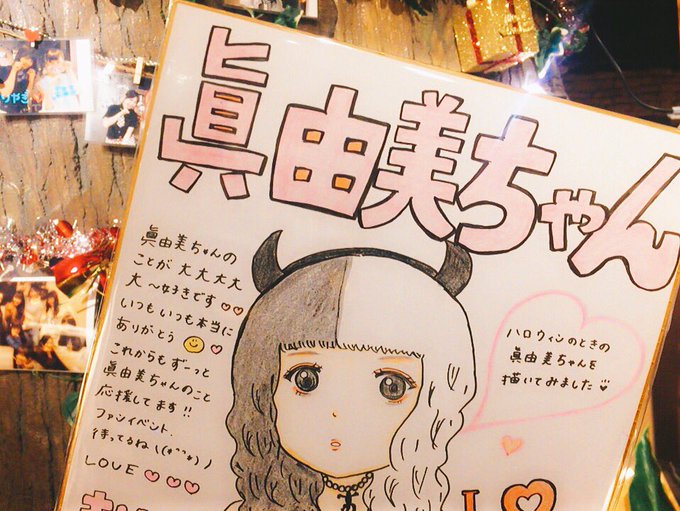 眞由美ちゃん
眞由美ちゃんの
ことが大大大大
大〜好きです♡♡
いつもいつも本当に
ありがとう
これからもずーっと
眞由美ちゃんのこと
応援してます!!
ファンイベント
待ってるね
LOVE♡♡♡
ハロウィンのときの
眞由美ちゃんを
描いてみました
I♡